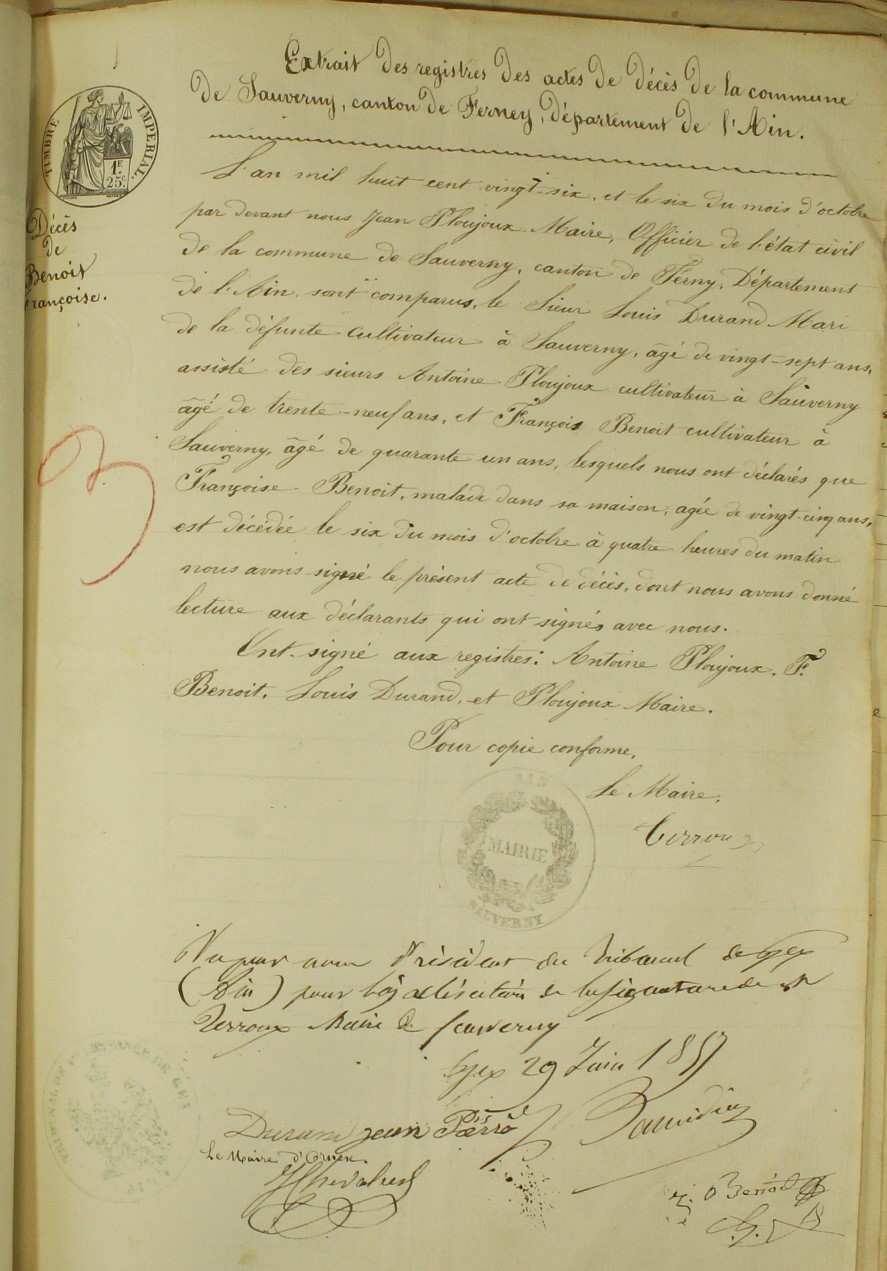 Extrait des registres des actes de décès de la commune
de Sauverny, canton de Ferney, département de l'Ain.
TIMBRE IMPERIAL.
1F.
25c
Décès
de
Benoit
Françoise.
L'an mil huit cent vingt-six, et le six du mois d'octobre
par devant nous Jean Ploujoux Maire, Officier de l'état civil
de la commune de Sauverny, canton de Ferny, Département
de l'Ain, sont comparus, le Sieur Louis Durand Mari
de la défunte cultivateur à Sauverny, âgé de vingt-sept ans,
assisté des sieurs Antoine Ploujoux cultivateur à Sauverny
âgé de trente-neuf ans, et François Benoit cultivateur à
Sauverny, âgé de quarante un ans, lesquels nous ont déclarés que
Françoise Benoit, malade dans sa maison, agée de vingt-cinq ans,
est décédée le six du mois d'octobre à quatre heures du matin
nous avons signé le présent acte de décès, dont nous avons donné
lecture aux déclarants qui ont signés avec nous.
Ont signé aux registres: Antoine Ploujoux. F.
Benoit, Louis Durand, et Ploujoux Maire.
Pour copie conforme,
Le Maire,
AIN
MAIRIE
SAUVERNY
Vu par nous Président du Tribunal de Gex
(Ain) pour légalisation de la signature de Mr
Verroux Maire de Sauverny
Gex 29 Juin 1857
Durand jean Pierre
Le Maire d'Ornex
Benoit